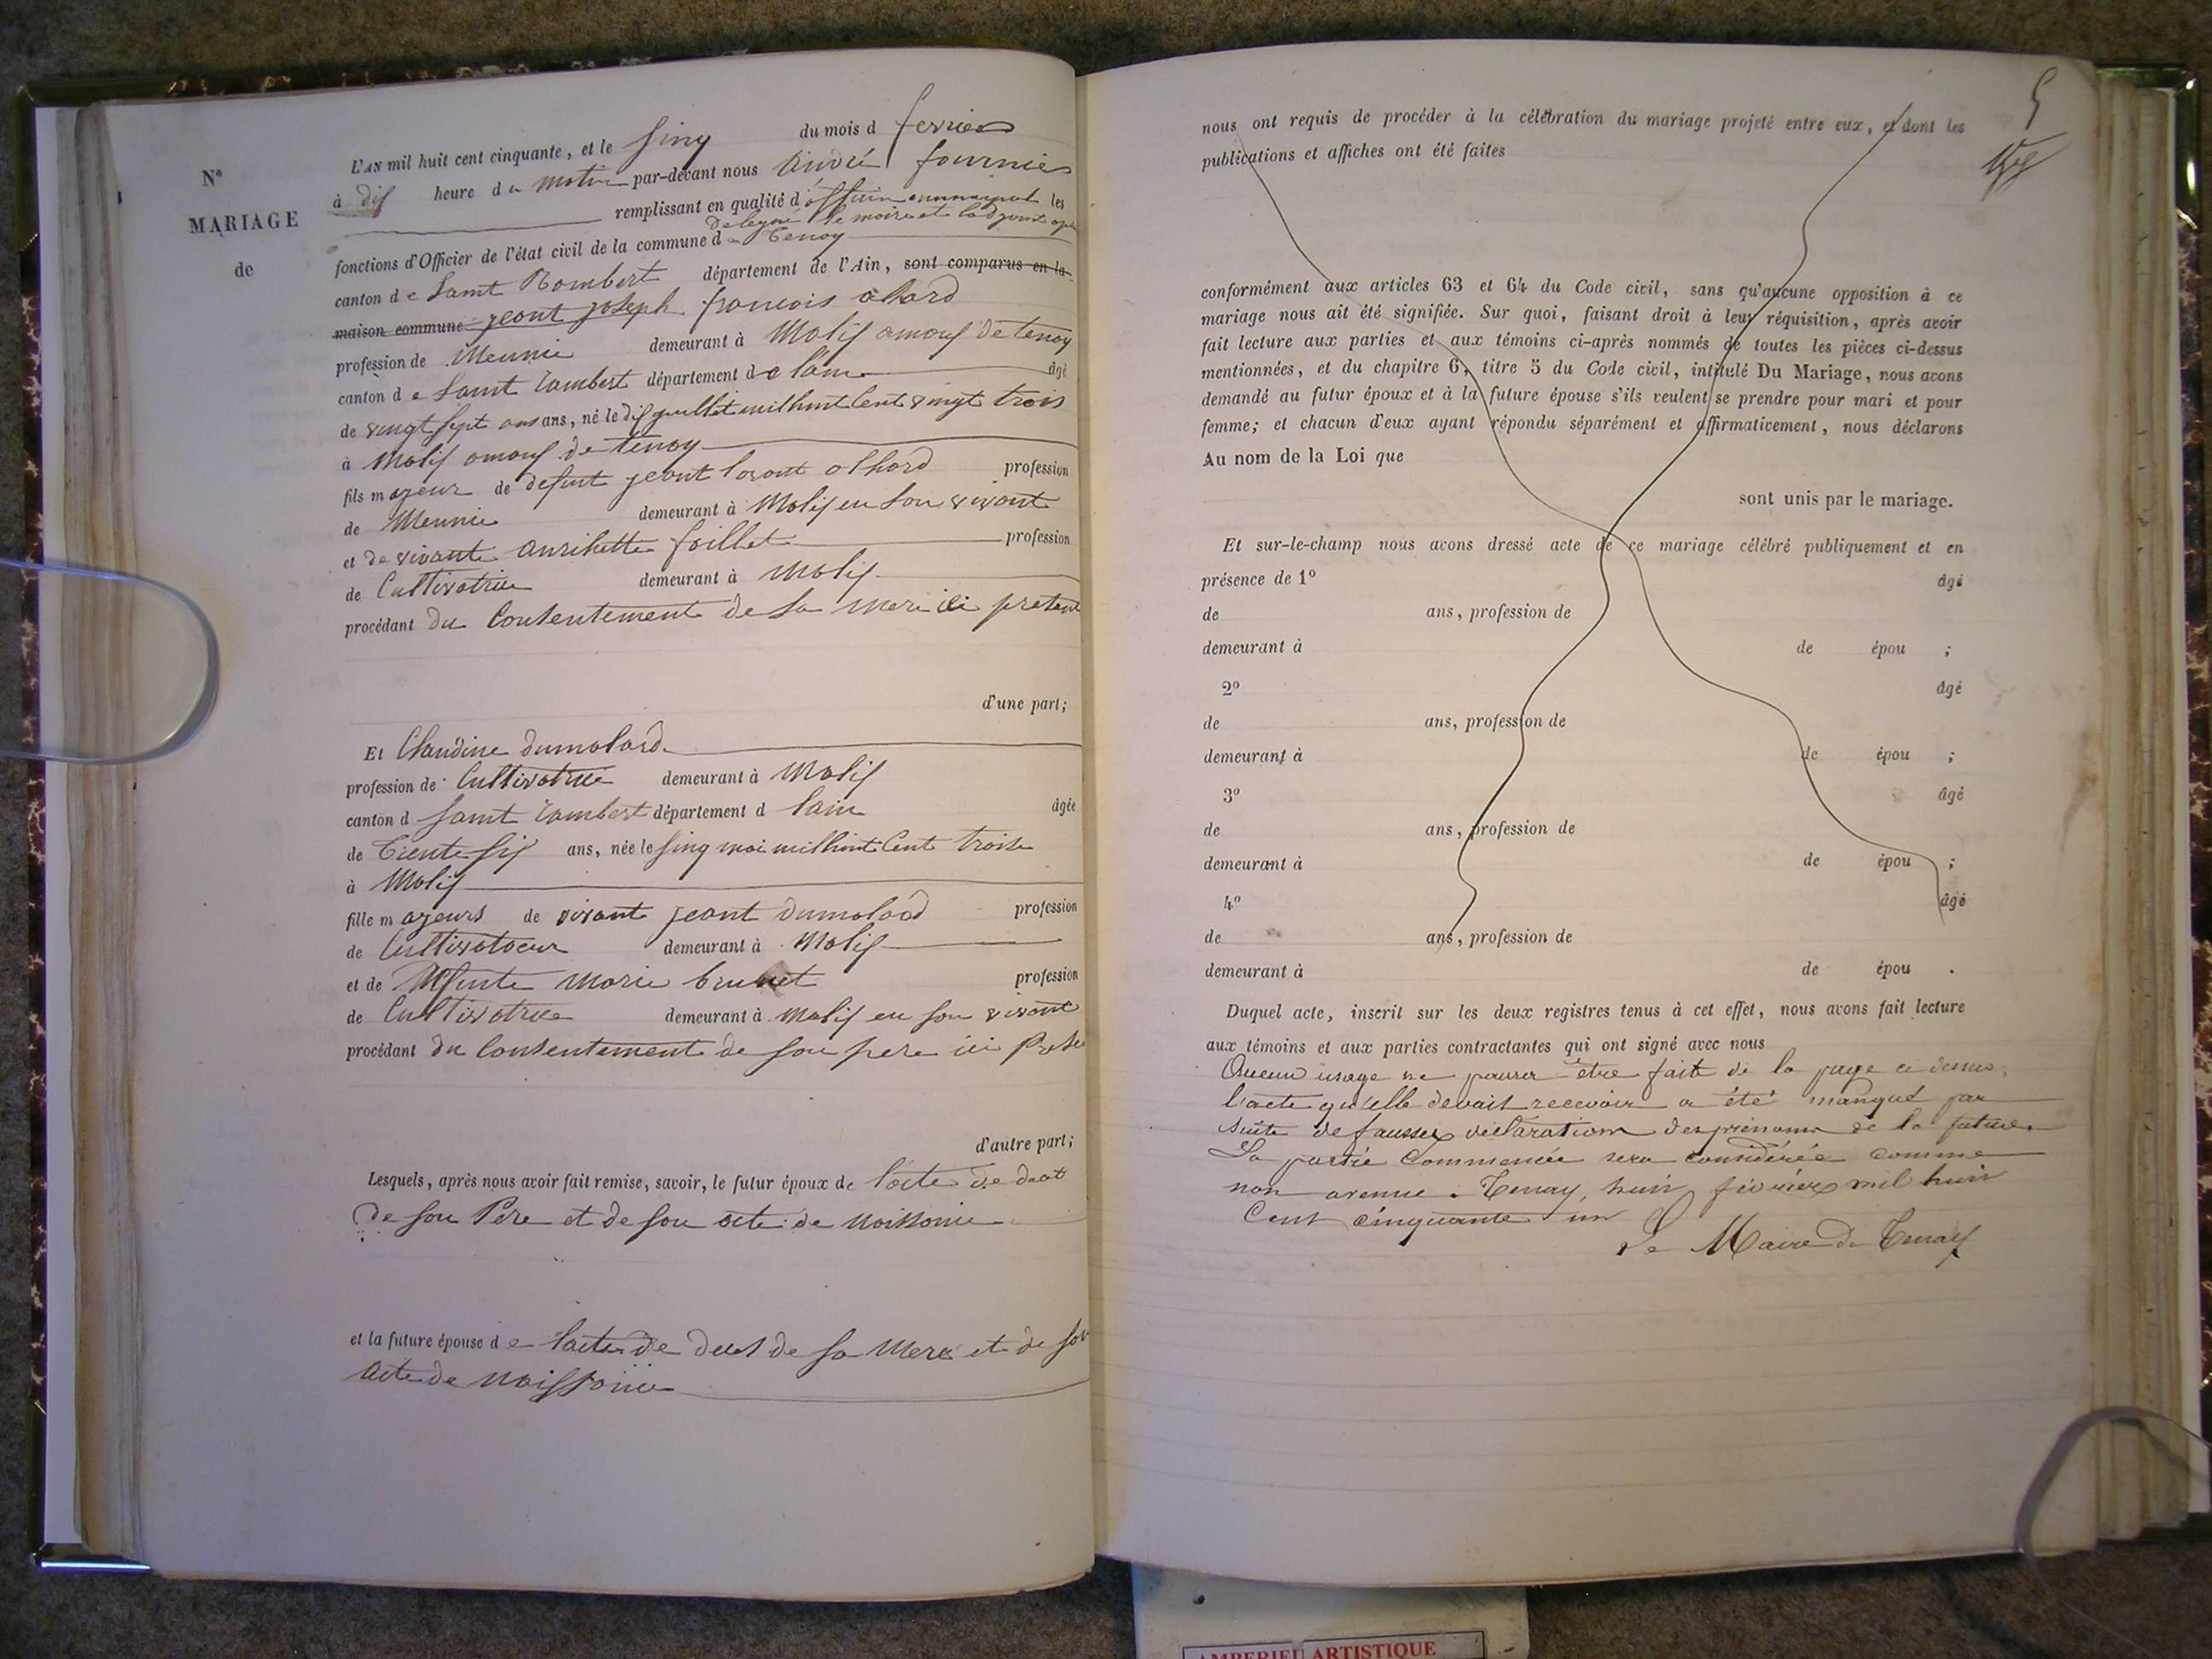 N°
MARIAGE
de
L'AN mil huit cent cinquante, et le sinq du mois d fevrier
à dis heure du matin par-devant nous André fournier
remplissant en qualité d'officier municipal les
delegué le maire et ladjoint
fonctions d'Officier de l'état civil de la commune de Tenay
canton de Saint Rombert département de l'Ain, sont comparus en la
maison commune jeant joseph francois alhard
profession de Meunie demeurant à Malix amouf de tenay
canton de Saint Rambert département de lain âgé
de vingt sept ans ans, né le dix juillet mil huit cent vingt trois
à Malix amouf de tenay
fils majeur de defunt jeant lorant alhard profession
de Meunie demeurant à Malix en son vivant
et de vivante anrihette foillet profession
de Cultivatrice demeurant à Malix
procédant du Consentement de sa mere ici present
d'une part;
Et Claudine dumolard
profession de Cultivatrice demeurant à Malix
canton d Saint Rambert département d lain âgée
de Trente six ans, née le sinq mai mil huit cent troise
à Malix
fille majeurs de vivant jeant dumolard profession
de Cultivatoeur demeurant à Malix
et de defunte marie brunet profession
de Cultivatrice demeurant à malix en son vivant
procédant du consentement de son pere ici prese
d'autre part;
Lesquels, après nous avoir fait remise, savoir, le futur époux de l'acte de deat
de son Pere et de son acte de naissanie
et la future épouse de lacte de deces de sa Mere et de son
acte de naissanie
5
nous ont requis de procéder à la célébration du mariage projeté entre eux, et dont les
publications et affiches ont été faites
conformément aux articles 63 et 64 du Code civil, sans qu'aucune opposition à ce
mariage nous ait été signifiée. Sur quoi, faisant droit à leur réquisition, après avoir
fait lecture aux parties et aux témoins ci-après nommés de toutes les pièces ci-dessus
mentionnées, et du chapitre 6, titre 5 du Code civil, intitulé Du Mariage, nous avons
demandé au futur époux et à la future épouse s'ils veulent se prendre pour mari et pour
femme; et chacun d'eux ayant répondu séparément et affirmativement, nous déclarons
Au nom de la Loi que
sont unis par le mariage.
Et sur-le-champ nous avons dressé acte de ce mariage célébré publiquement et en
présence de 1° âgé
de ans, profession de
demeurant à de épou ;
2° âgé
de ans, profession de
demeurant à de épou ;
3° âgé
de ans, profession de
demeurant à de épou ;
4° âgé
de ans, profession de
demeurant à de épou .
Duquel acte, inscrit sur les deux registres tenus à cet effet, nous avons fait lecture
aux témoins et aux parties contractantes qui ont signé avec nous
Aucun usage ne pourra être fait de la page ci dessus,
l'acte qu'elle devait recevoir a été manqué par
suite de fausses déclarations des prénoms de la future.
La partie commencée sera considérée comme
non avenue. Tenay, huit février mil huit
cent cinquante un
Le Maire de Tenay
AMBERIEU ARTISTIQUE